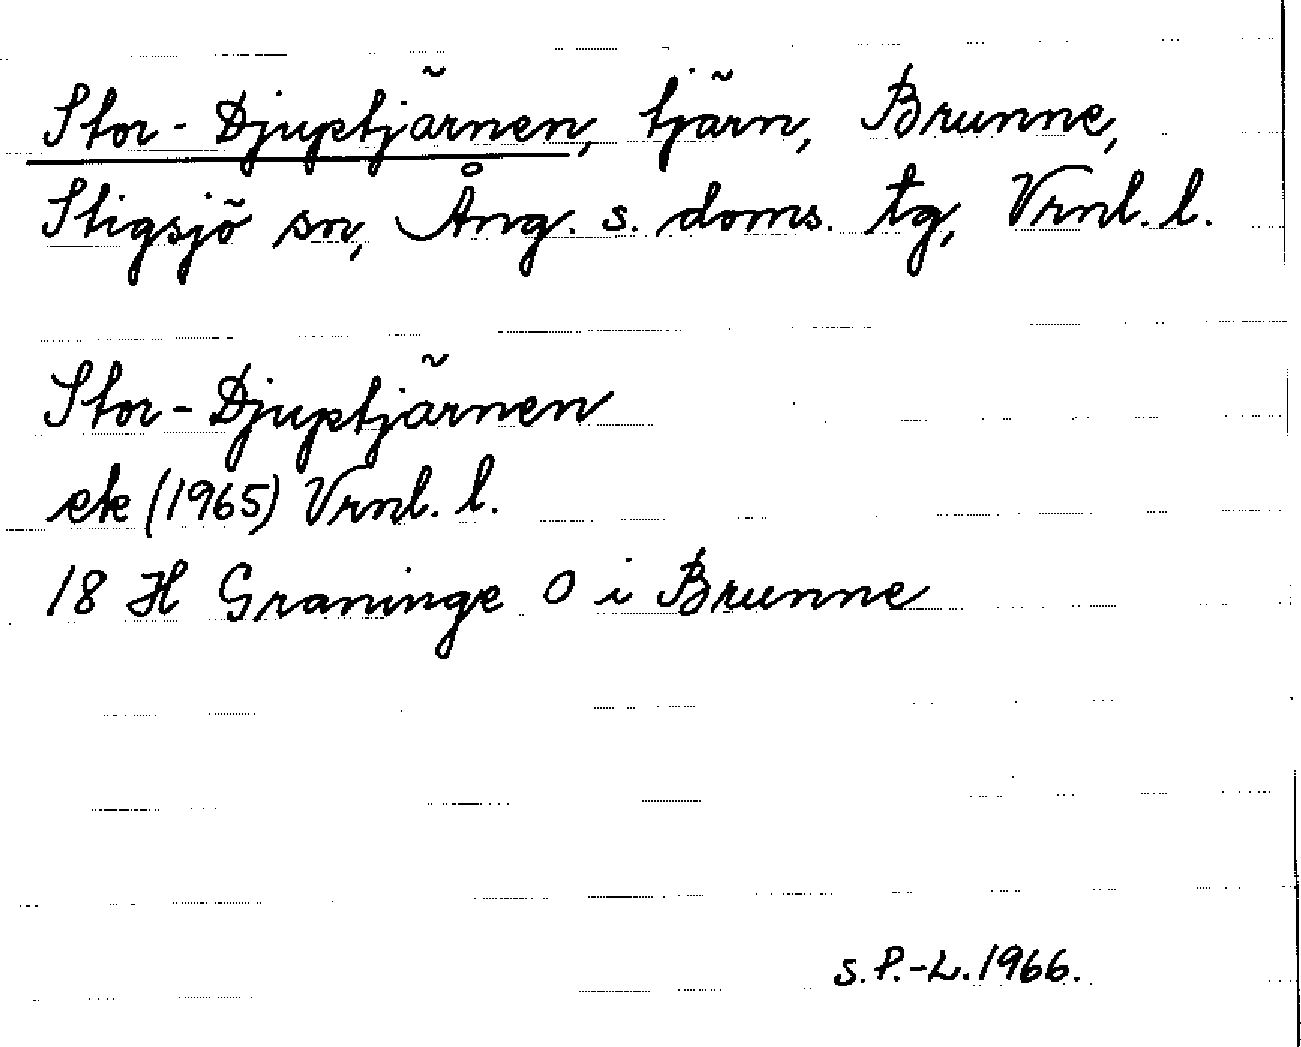 Stor-Djuptjärnen, tjärn, Brunne,
Stigsjö sn, Ång. s. doms. tg, Vrnl. l.
Stor-Djuptjärnen
ek (1965) Vrnl. l.
18 H Graninge O i Brunne
S. P.-L. 1966.